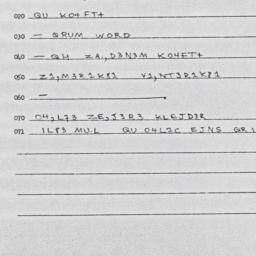 020 QU KO4FT+
030 — QRUM WORD
040 — QU ZA,D3N3M KO4FT+
050 Z1,M3R1K81 V1,NT3R1K81
060 —
070 O4,L73 ZE,J3R3 KLEJD3R
071 1L83 MU.L QU O4L7C EJNS QR1